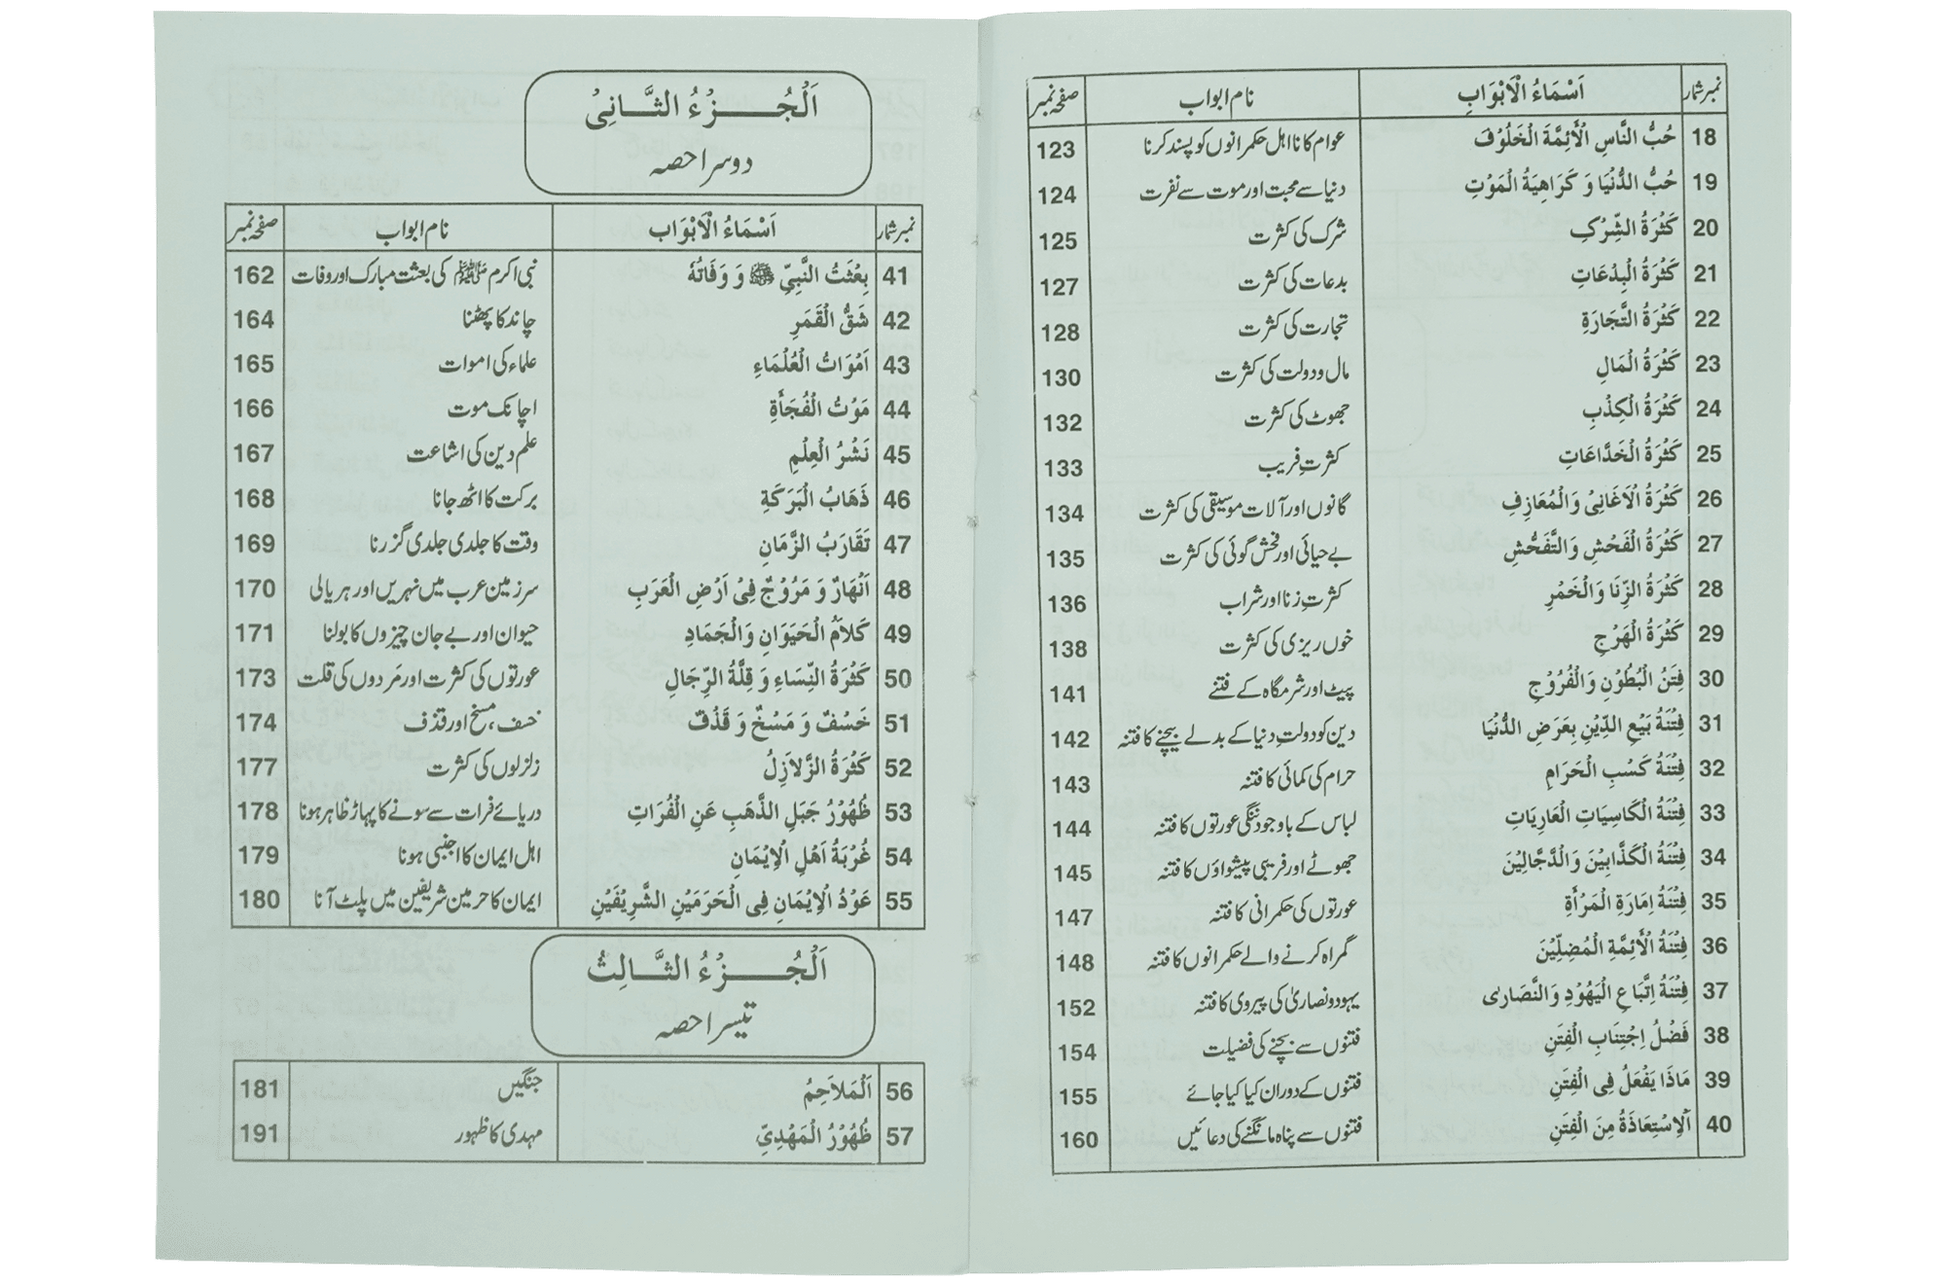 نمبر شمار اَسْمَاءُ الْاَبْوَابِ نام ابواب صفحہ نمبر
18 حُبُّ النَّاسِ الْاَئِمَّةَ الْخَلُوْفَ عوام کا نااہل حکمرانوں کو پسند کرنا 123
19 حُبُّ الدُّنْيَا وَ كَرَاهِيَةُ الْمَوْتِ دنیا سے محبت اور موت سے نفرت 124
20 كَثْرَةُ الشِّرْكِ شرک کی کثرت 125
21 كَثْرَةُ الْبِدْعَاتِ بدعات کی کثرت 127
22 كَثْرَةُ التِّجَارَةِ تجارت کی کثرت 128
23 كَثْرَةُ الْمَالِ مال و دولت کی کثرت 130
24 كَثْرَةُ الْكِذْبِ جھوٹ کی کثرت 132
25 كَثْرَةُ الْخَدَّاعَاتِ کثرتِ فریب 133
26 كَثْرَةُ الْاَغَانِيْ وَالْمُعَازِفِ گانوں اور آلات موسیقی کی کثرت 134
27 كَثْرَةُ الْفَحْشِ وَالتَّفَحُّشِ بے حیائی اور فحش گوئی کی کثرت 135
28 كَثْرَةُ الزِّنَا وَالْخَمْرِ کثرتِ زنا اور شراب 136
29 كَثْرَةُ الْهَرْجِ خوں ریزی کی کثرت 138
30 فِتَنُ الْبُطُوْنِ وَالْفُرُوْجِ پیٹ اور شرمگاہ کے فتنے 141
31 فِتْنَةُ بَيْعِ الدِّيْنِ بِعَرَضِ الدُّنْيَا دین کو دولتِ دنیا کے بدلے بیچنے کا فتنہ 142
32 فِتْنَةُ كَسْبِ الْحَرَامِ حرام کی کمائی کا فتنہ 143
33 فِتْنَةُ الْكَاسِيَاتِ الْعَارِيَاتِ لباس کے باوجود ننگی عورتوں کا فتنہ 144
34 فِتْنَةُ الْكَذَّابِيْنَ وَالدَّجَّالِيْنَ جھوٹے اور فریبی پیشواؤں کا فتنہ 145
35 فِتْنَةُ اِمَارَةِ الْمَرْأَةِ عورتوں کی حکمرانی کا فتنہ 147
36 فِتْنَةُ الْاَئِمَّةِ الْمُضِلِّيْنَ گمراہ کرنے والے حکمرانوں کا فتنہ 148
37 فِتْنَةُ اِتِّبَاعِ الْيَهُوْدِ وَالنَّصَارٰى یہود و نصاریٰ کی پیروی کا فتنہ 152
38 فَضْلُ اِجْتِنَابِ الْفِتَنِ فتنوں سے بچنے کی فضیلت 154
39 مَاذَا يَفْعَلُ فِى الْفِتَنِ فتنوں کے دوران کیا کیا جائے 155
40 اَلْاِسْتِعَاذَةُ مِنَ الْفِتَنِ فتنوں سے پناہ مانگنے کی دعائیں 160
اَلْجُزْءُ الثَّانِيْ
دوسرا حصہ
نمبر شمار اَسْمَاءُ الْاَبْوَابِ نام ابواب صفحہ نمبر
41 بِعْثَتُ النَّبِيِّ ﷺ وَ وَفَاتُهٗ نبی اکرم ﷺ کی بعثت مبارک اور وفات 162
42 شَقُّ الْقَمَرِ چاند کا پھٹنا 164
43 اَمْوَاتُ الْعُلْمَاءِ علماء کی اموات 165
44 مَوْتُ الْفُجَأَةِ اچانک موت 166
45 نَشْرُ الْعِلْمِ علم دین کی اشاعت 167
46 ذَهَابُ الْبَرَكَةِ برکت کا اٹھ جانا 168
47 تَقَارَبُ الزَّمَانِ وقت کا جلدی جلدی گزرنا 169
48 اَنْهَارٌ وَ مَرُوْجٌ فِيْ اَرْضِ الْعَرَبِ سرزمین عرب میں نہریں اور ہریالی 170
49 كَلَامُ الْحَيَوَانِ وَالْجَمَادِ حیوان اور بے جان چیزوں کا بولنا 171
50 كَثْرَةُ النِّسَاءِ وَ قِلَّةُ الرِّجَالِ عورتوں کی کثرت اور مَردوں کی قلت 173
51 خَسْفٌ وَ مَسْخٌ وَ قَذْفٌ خسف، مسخ اور قذف 174
52 كَثْرَةُ الزَّلَازِلُ زلزلوں کی کثرت 177
53 ظُهُوْرُ جَبَلِ الذَّهَبِ عَنِ الْفُرَاتِ دریائے فرات سے سونے کا پہاڑ ظاہر ہونا 178
54 غُرْبَةُ اَهْلِ الْاِيْمَانِ اہل ایمان کا اجنبی ہونا 179
55 عَوْدُ الْاِيْمَانِ فِى الْحَرَمَيْنِ الشَّرِيْفَيْنِ ایمان کا حرمین شریفین میں پلٹ آنا 180
اَلْجُزْءُ الثَّالِثُ
تیسرا حصہ
56 اَلْمَلَاحِمُ جنگیں 181
57 ظُهُوْرُ الْمَهْدِيِّ مہدی کا ظہور 191